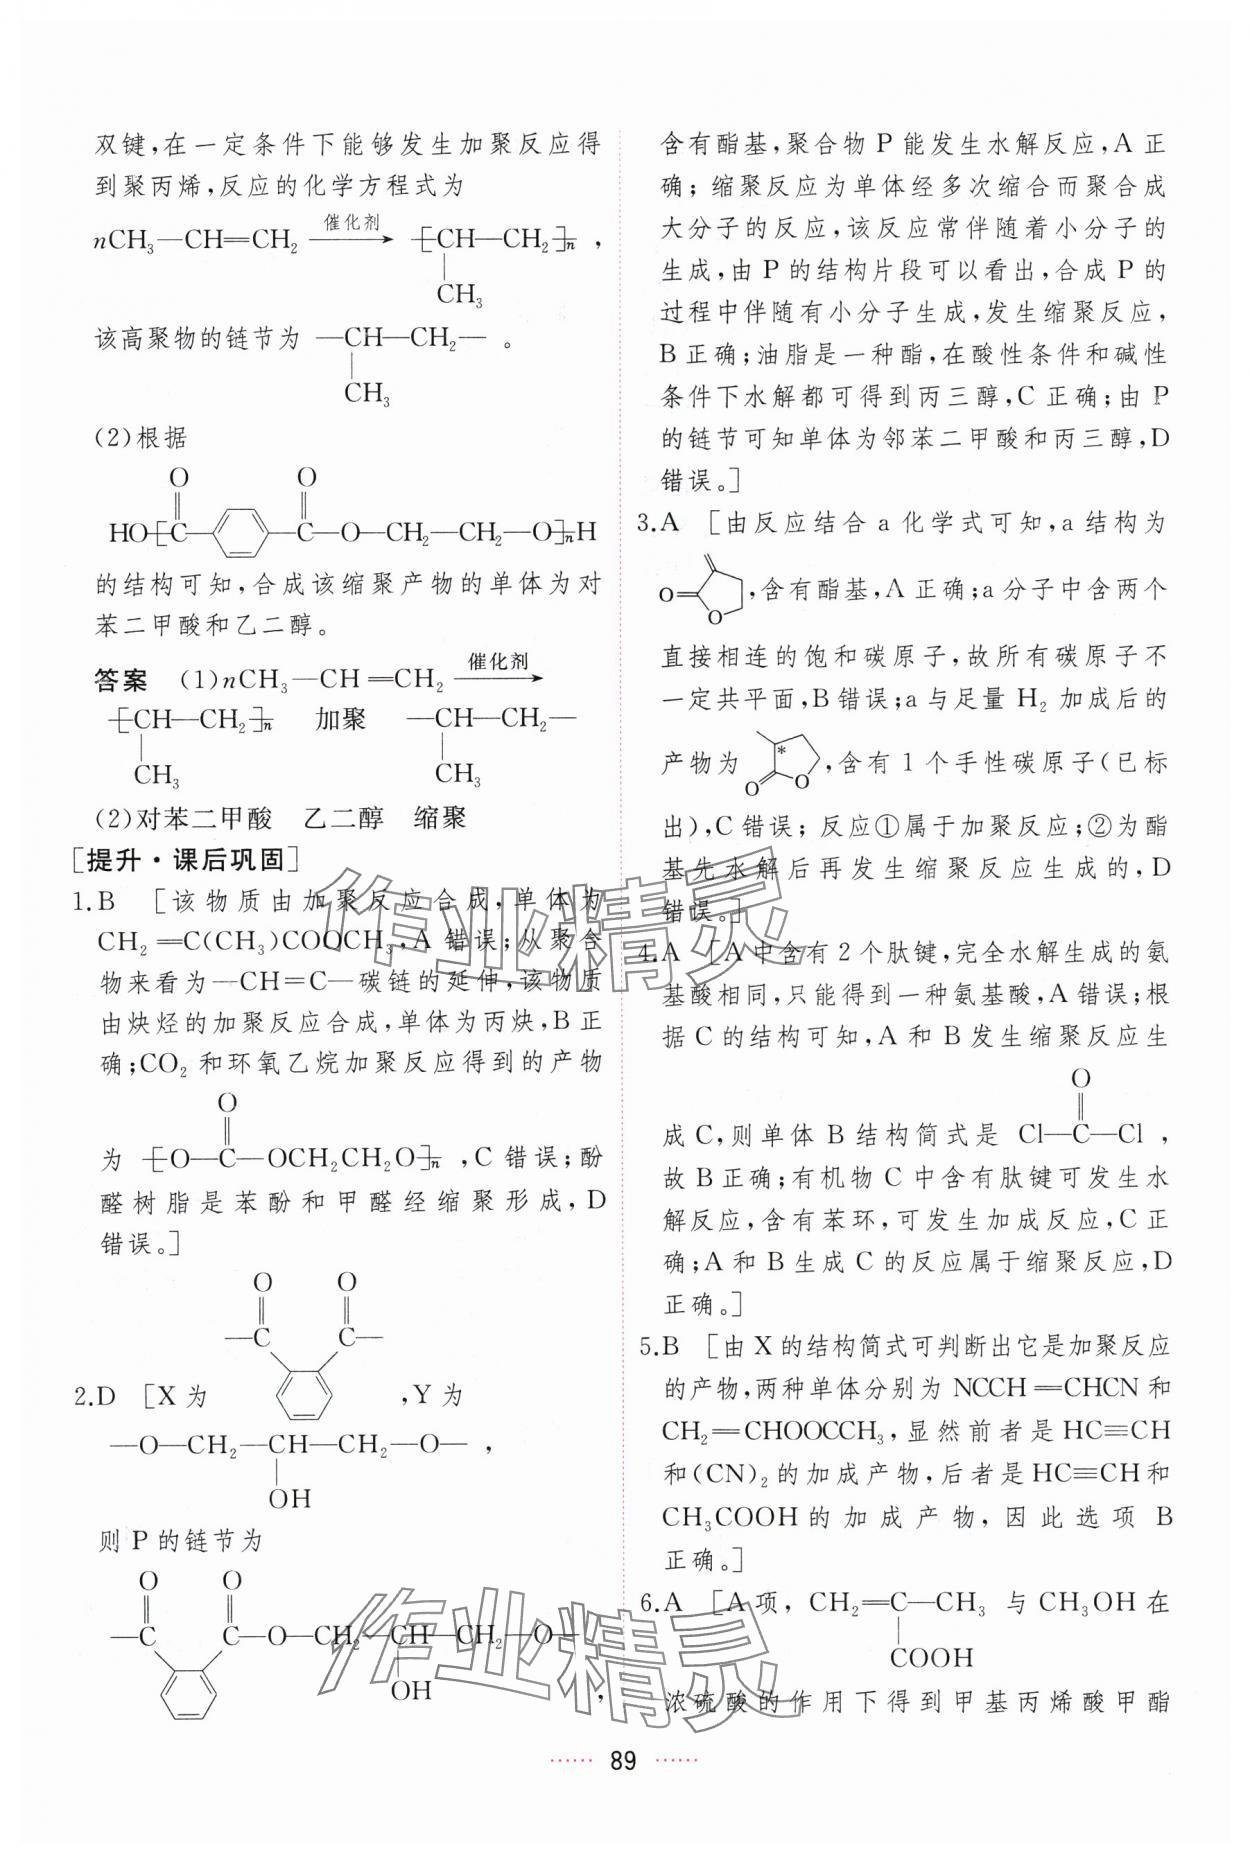 双键,在一定条件下能够发生加聚反应得
到聚丙烯,反应的化学方程式为
nCH₃—CH=CH₂ —催化剂→ ⁅CH—CH₂⁆n ,
CH₃
该高聚物的链节为 —CH—CH₂— 。
CH₃
(2)根据
O O
HO⁅C—C—O—CH₂—CH₂—O⁆nH
的结构可知,合成该缩聚产物的单体为对
苯二甲酸和乙二醇。
答案 (1)nCH₃—CH=CH₂ —催化剂→
⁅CH—CH₂⁆n 加聚 —CH—CH₂—
CH₃ CH₃
(2)对苯二甲酸 乙二醇 缩聚
[提升·课后巩固]
1.B [该物质由加聚反应合成,单体为
CH₂=C(CH₃)COOCH₃,A 错误;从聚合
物来看为—CH=C—碳链的延伸,该物质
由炔烃的加聚反应合成,单体为丙炔,B正
确;CO₂ 和环氧乙烷加聚反应得到的产物
O
为 ⁅O—C—OCH₂CH₂O⁆n ,C 错误;酚
醛树脂是苯酚和甲醛经缩聚形成,D
错误。]
O O
—C C—
2.D [X 为 ,Y 为
—O—CH₂—CH—CH₂—O— ,
OH
则 P 的链节为
O O
—C C—O—CH₂—CH—CH₂—O—
OH ,
含有酯基,聚合物 P 能发生水解反应,A 正
确;缩聚反应为单体经多次缩合而聚合成
大分子的反应,该反应常伴随着小分子的
生成,由 P 的结构片段可以看出,合成 P 的
过程中伴随有小分子生成,发生缩聚反应,
B 正确;油脂是一种酯,在酸性条件和碱性
条件下水解都可得到丙三醇,C 正确;由 P
的链节可知单体为邻苯二甲酸和丙三醇,D
错误。]
3.A [由反应结合 a 化学式可知,a 结构为
O O ,含有酯基,A 正确;a 分子中含两个
直接相连的饱和碳原子,故所有碳原子不
一定共平面,B 错误;a 与足量 H₂ 加成后的
产物为 * O O ,含有 1 个手性碳原子(已标
出),C 错误;反应①属于加聚反应;②为酯
基先水解后再发生缩聚反应生成的,D
错误。]
4.A [A 中含有 2 个肽键,完全水解生成的氨
基酸相同,只能得到一种氨基酸,A 错误;根
据 C 的结构可知,A 和 B 发生缩聚反应生
O
成 C,则单体 B 结构简式是 Cl—C—Cl ,
故 B 正确;有机物 C 中含有肽键可发生水
解反应,含有苯环,可发生加成反应,C 正
确;A 和 B 生成 C 的反应属于缩聚反应,D
正确。]
5.B [由 X 的结构简式可判断出它是加聚反应
的产物,两种单体分别为 NCCH=CHCN 和
CH₂=CHOOCCH₃,显然前者是 HC≡CH
和(CN)₂ 的加成产物,后者是 HC≡CH 和
CH₃COOH 的加成产物,因此选项 B
正确。]
6.A [A 项, CH₂=C—CH₃ 与 CH₃OH 在
COOH
浓硫酸的作用下得到甲基丙烯酸甲酯
作业精灵
作业精灵
89